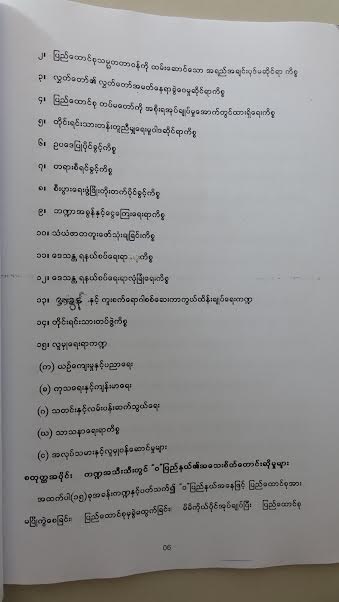 ၂။ ပြည်ထောင်စုသမ္မတတာဝန်ကို ထမ်းဆောင်သော အရည်အချင်းပုဒ်မဆိုင်ရာ ကိစ္စ
၃။ လွှတ်တော်၏ လွှတ်တော်အမတ်နေရာခွဲဝေမှုဆိုင်ရာကိစ္စ
၄။ ပြည်ထောင်စု တပ်မတော်ကို အစိုးရအုပ်ချုပ်မှုအောက်တွင်ထားရှိရေးကိစ္စ
၅။ တိုင်းရင်းသားတန်းတူညီမျှရေးမူဝါဒဆိုင်ရာကိစ္စ
၆။ ဥပဒေပြုပိုင်ခွင့်ကိစ္စ
၇။ တရားစီရင်ခွင့်ကိစ္စ
၈။ စီးပွားရေးဖွံ့ဖြိုးတိုးတက်ပိုင်ခွင့်ကိစ္စ
၉။ ဘဏ္ဍာအခွန်နှင့်ငွေကြေးရေးရာကိစ္စ
၁၀။ သံယံဇာတတူးဖော်သုံးရခြင်းကိစ္စ
၁၁။ ဒေသန္တရနယ်စပ်ရေးရာ ကိစ္စ
၁၂။ ဒေသန္တရနယ်စပ်ရေးရာလုံခြုံရေးကိစ္စ
၁၃။ နှင့် ကူးစက်ရောဂါစစ်ဆေးကာကွယ်ထိန်းချုပ်ရေးကဏ္ဍ
၁၄။ တိုင်းရင်းသားတပ်ဖွဲ့ကိစ္စ
၁၅။ လူမှုရေးရာကဏ္ဍ
(က) ယဉ်ကျေးမှုနှင့်ပညာရေး
(ခ) ကုသရေးနှင့်ကျန်းမာရေး
(ဂ) သတင်းနှင့်လမ်းပန်းဆက်သွယ်ရေး
(ဃ) သာသနာရေးရာကိစ္စ
(င) အလုပ်သမားနှင့်လူမှုဝန်ဆောင်မှုများ
စတုတ္ထအပိုင်း ကဏ္ဍအသီးသီးတွင် "ဝ"ပြည်နယ်၏အသေးစိတ်တောင်းဆိုမှုများ
အထက်ပါ(၁၅)ခုအခန်းကဏ္ဍနှင့်ပတ်သက်၍ "ဝ"ပြည်နယ်အနေဖြင့် ပြည်ထောင်စုအား
မပြိုကွဲစေခြင်း၊ ပြည်ထောင်စုမှခွဲမထွက်ခြင်း၊ မိမိကိုယ်ပိုင်အုပ်ချုပ်ပြီး ပြည်ထောင်စု
06